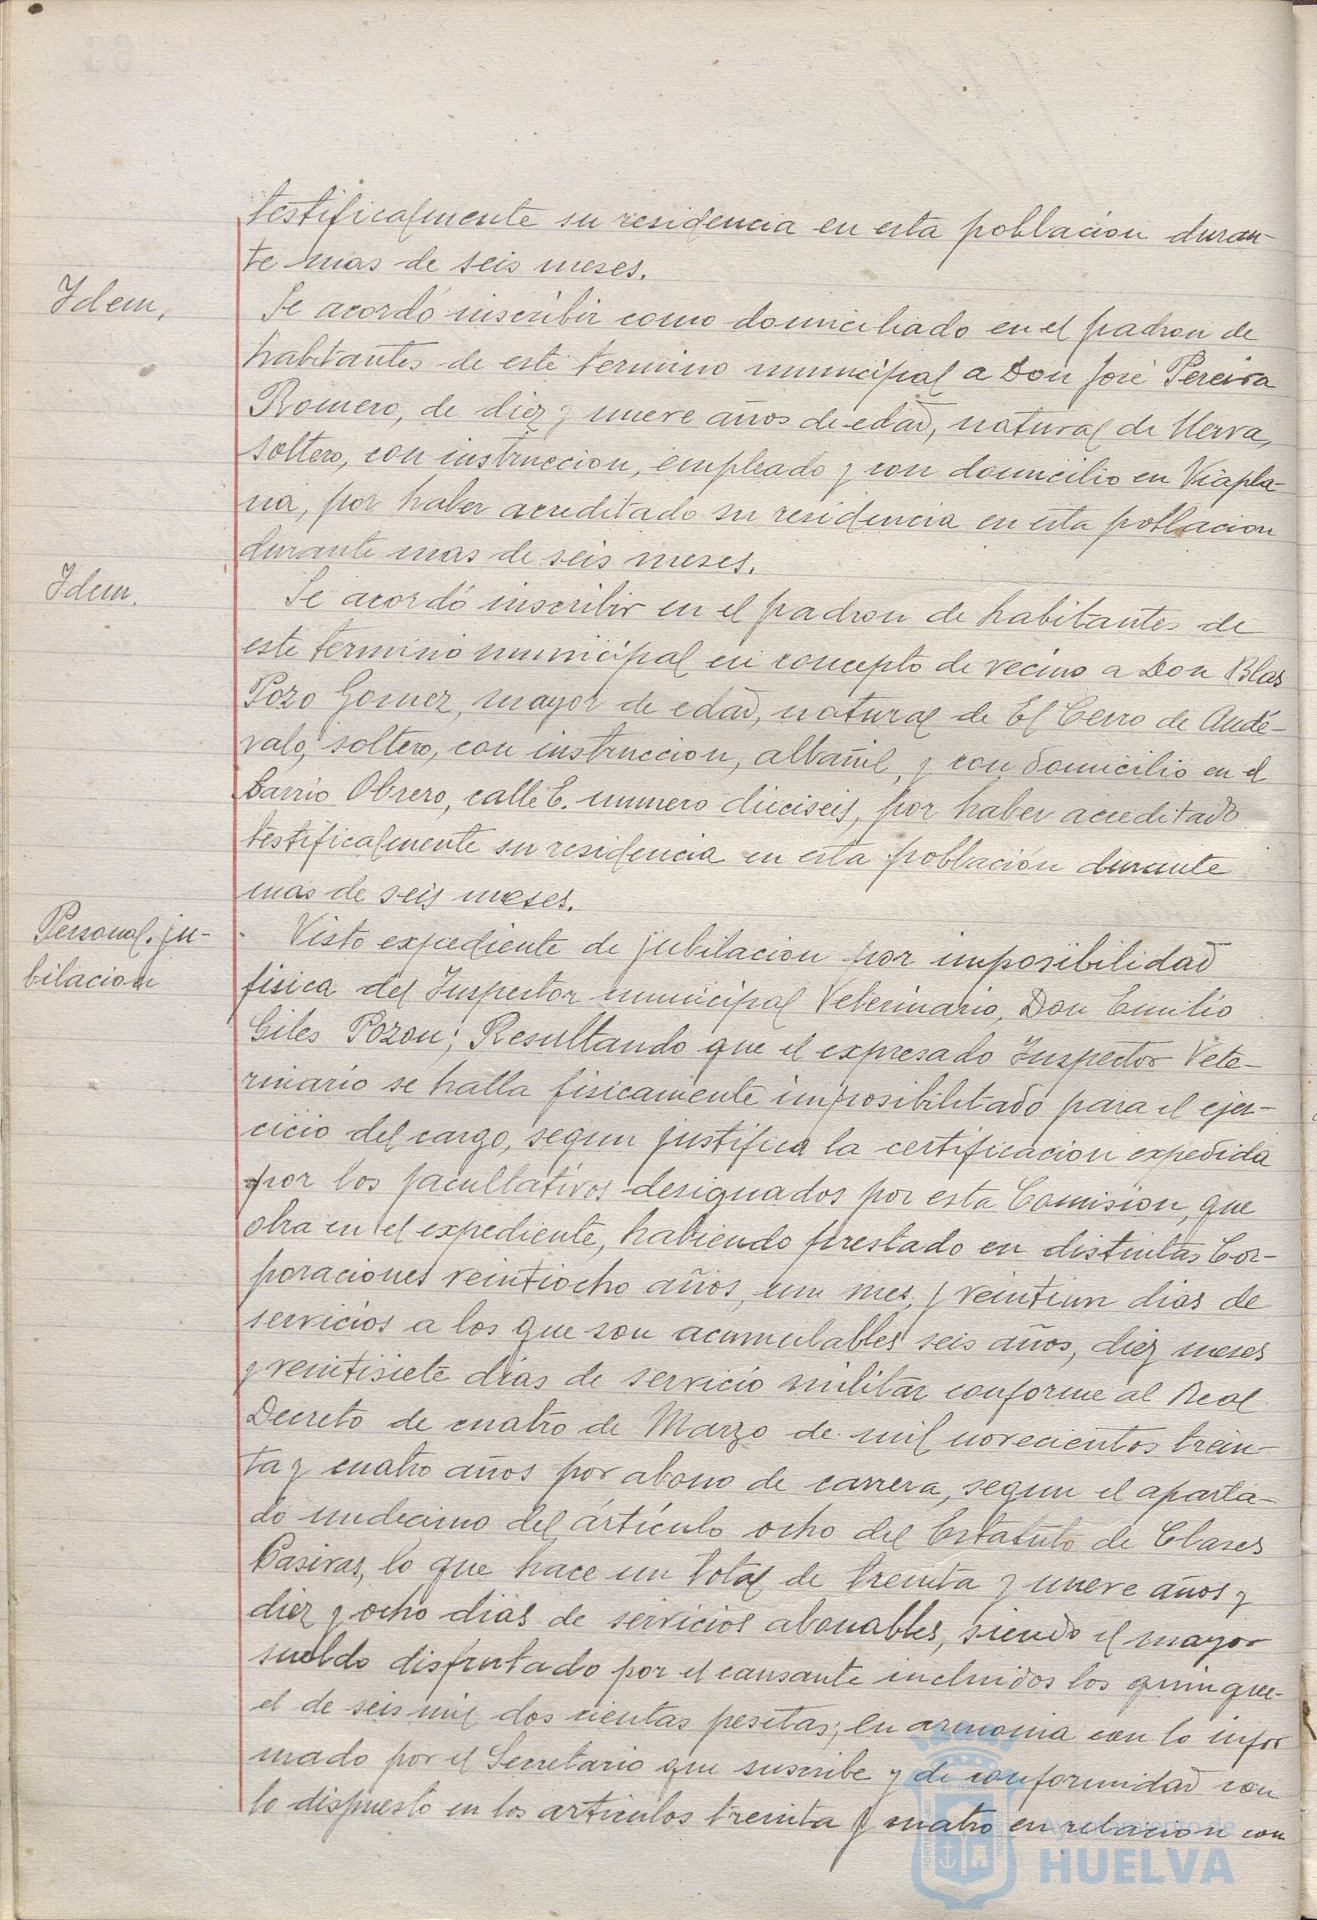 testificalmente su residencia en esta población duran-
te mas de seis meses.
Idem,
Se acordó inscribir como domiciliado en el padron de
habitantes de este termino municipal a Don José Pereira
Romero, de diez y nueve años de edad, natural de Nerva,
soltero, con instruccion, empleado y con domicilio en Viapla-
na, por haber acreditado su residencia en esta poblacion
durante mas de seis meses.
Idem.
Se acordó inscribir en el padron de habitantes de
este termino municipal en concepto de vecino a Don Blas
Pozo Gomez, mayor de edad, natural de El Cerro de Andé-
valo, soltero, con instruccion, albañil, y con domicilio en el
Barrio Obrero, calle E. numero dieciseis, por haber acreditado
testificalmente su residencia en esta población durante
mas de seis meses.
Personal. ju-
bilacion
Visto expediente de jubilacion por imposibilidad
fisica del Inspector municipal Veterinario, Don Emilio
Giles Pozon; Resultando que el expresado Inspector Vete-
rinario se halla fisicamente imposibilitado para el ejer-
cicio del cargo, segun justifica la certificacion expedida
por los facultativos designados por esta Comision, que
obra en el expediente, habiendo prestado en distintas Cor-
poraciones veintiocho años, un mes, y veintiun dias de
servicios a los que son acumulables seis años, diez meses
y veintisiete dias de servicio militar conforme al Real
Decreto de cuatro de Marzo de mil novecientos trein-
ta y cuatro años por abono de carrera, segun el aparta-
do undecimo del artículo ocho del Estatuto de Clases
Pasivas, lo que hace un total de treinta y nueve años y
diez y ocho dias de servicios abonables, siendo el mayor
sueldo disfrutado por el causante incluidos los quinque-
el de seis mil dos cientas pesetas; en armonia con lo infor
mado por el Secretario que suscribe y de conformidad con
lo dispuesto en los articulos treinta y cuatro en relacion con
Ayuntamiento de
HUELVA